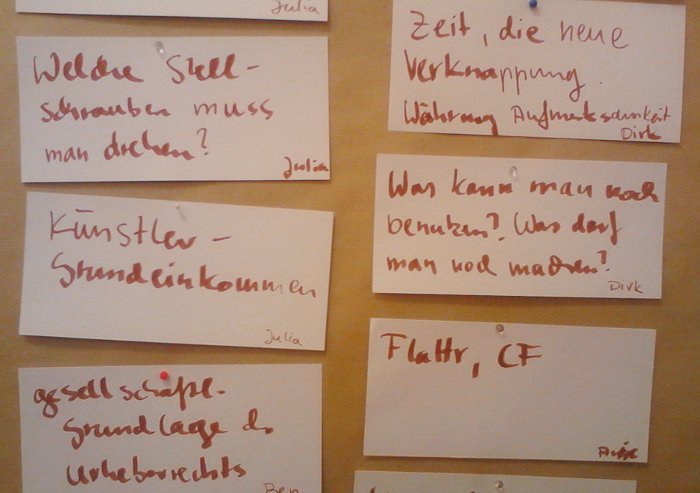 Julia
Welche Stell-
schrauben muss
man drehen?
Julia
Künstler-
Grundeinkommen
Julia
gesellschaftl.
Grundlage d.
Urheberrechts
Ben
Zeit, die neue
Verknappung.
Währung Aufmerksamkeit
Dirk
Was kann man noch
benutzen? Was darf
man noch machen?
Dirk
Flattr, CF